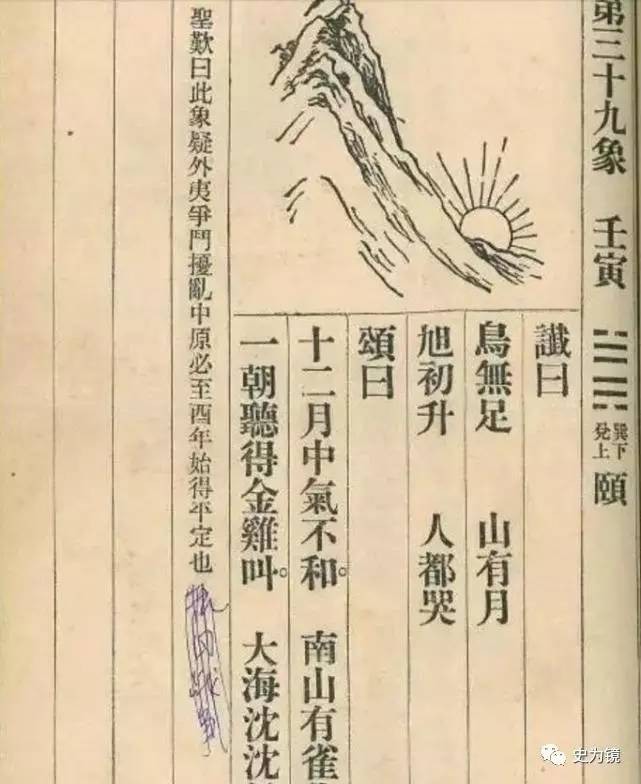 第三十九象 壬寅 巽下兌上 頤
讖曰
鳥無足 山有月
旭初升 人都哭
頌曰
十二月中氣不和。 南山有雀
一朝聽得金雞叫。 大海沈沈
聖歎曰此象疑外夷爭鬥擾亂中原必至酉年始得平定也
史力镜